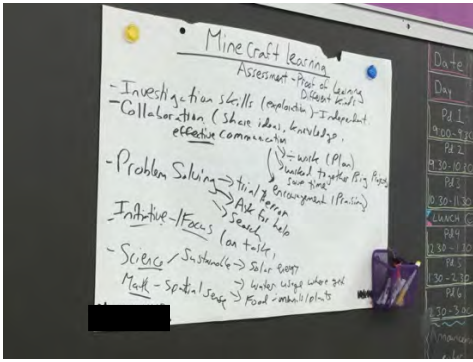 Minecraft Learning
Assessment - Proof of Learning
Different kinds
- Investigation skills (exploration) - Independent
- Collaboration (share ideas, knowledge,
effective communication
÷ work (Plan)
worked together Big Project
save time
encouragement (Praising)
- Problem Solving → trial & error
→ Ask for help
→ Search
- Initiative / Focus (on task,
- Science / Sustainable → Solar energy
→ water usage where get
Math - spatial sense → Food - animals/plants
Date
Day
Pd 1
9:00-
Pd 2
9:30-10:
Pd 3
10:30-11:30
LUNCH
Pd 4
12:30-1:
Pd 5
1:30-2:30
Pd 6
2:30-3: